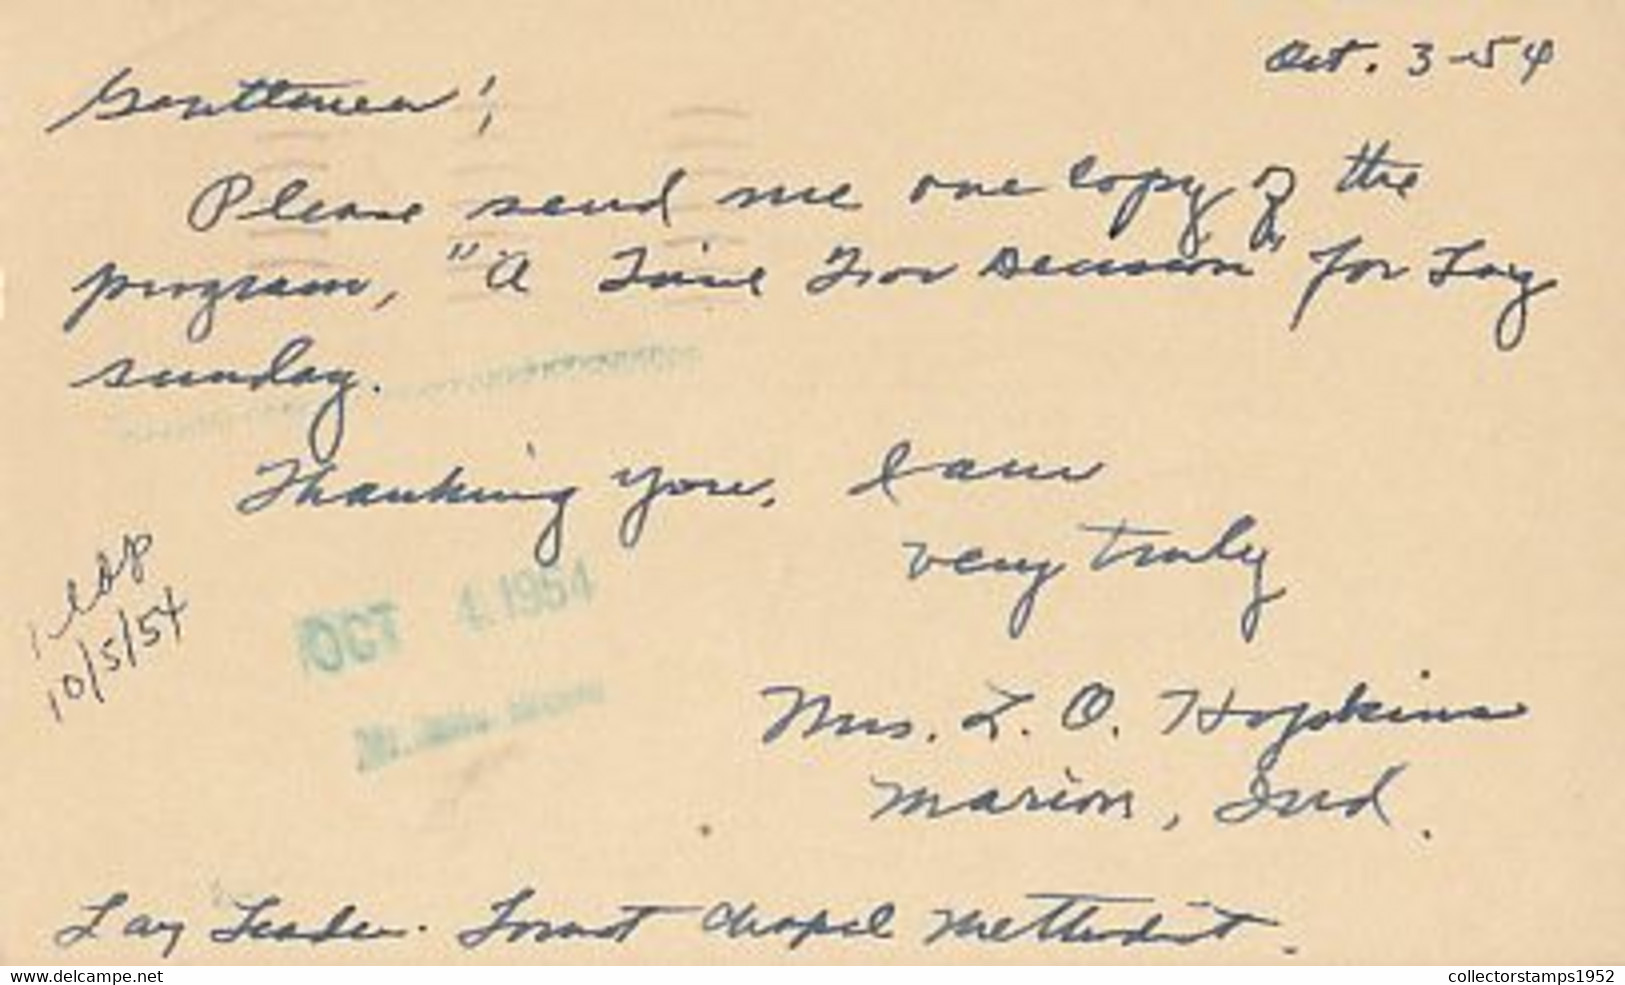 Oct. 3-54
Gentlemen;
Please send me one copy of the
program, "A Time For Decision" for Lay
sunday.
Thanking you, I am
very truly
10/5/54
OCT 4 1954
Mrs. L. O. Hopkins
Marion, Ind.
Lay Leader. Chapel Methodist.
delcampe.net
collectorstamps1952